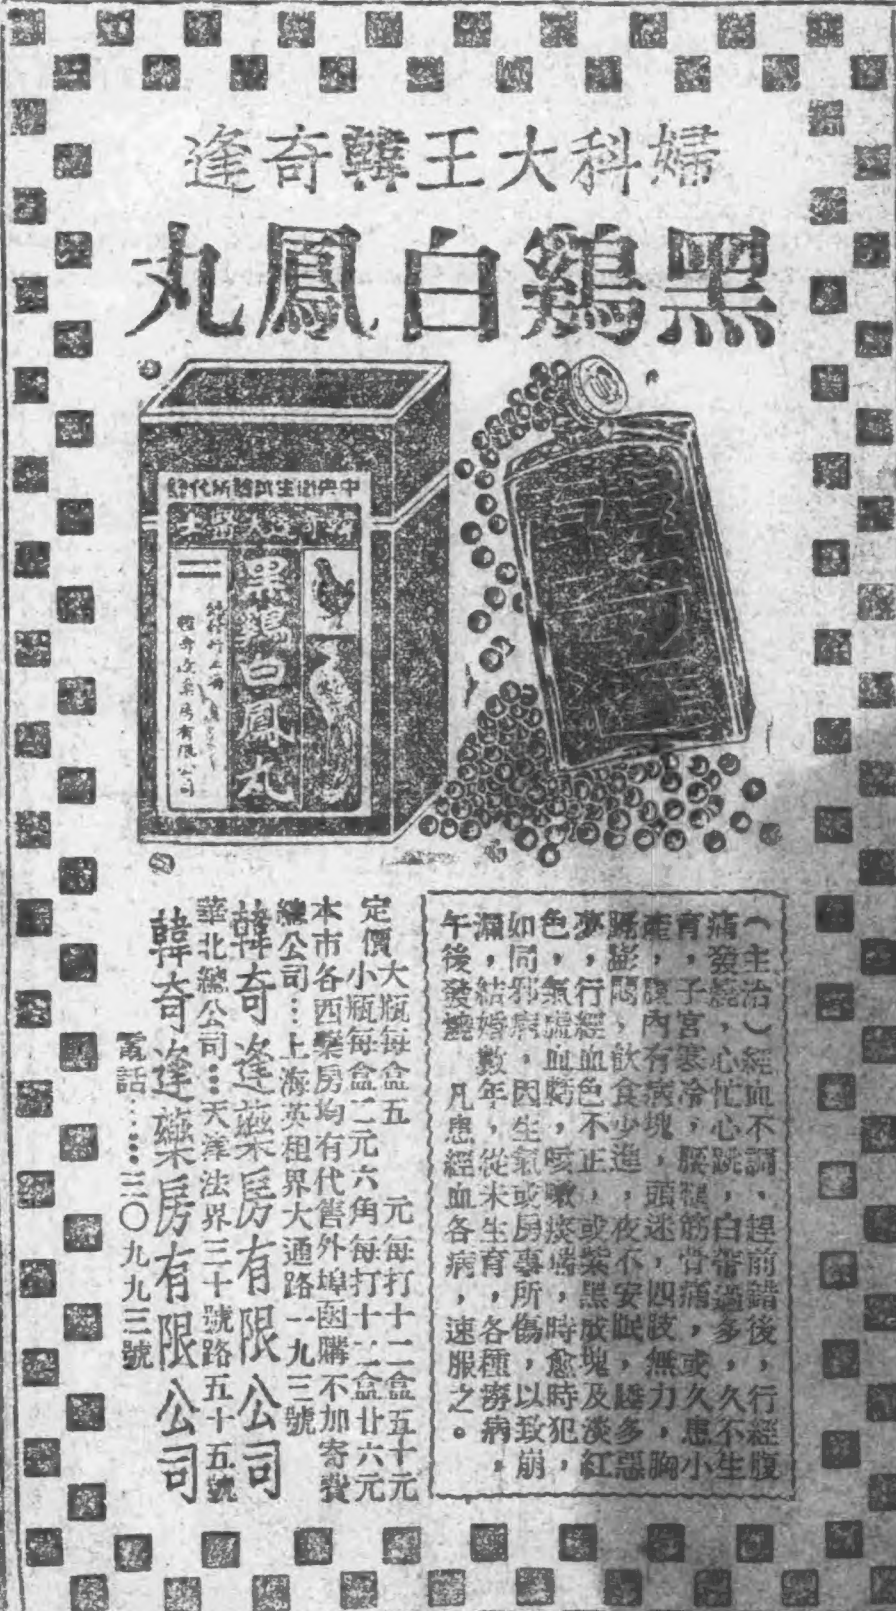 婦科大王韓奇逢
黑鷄白鳳丸
中央衞生試驗所化驗
韓奇逢大醫士
黑鷄白鳳丸
韓奇逢藥房有限公司
(主治)經血不調、趕前錯後,行經腹
痛發燒,心忙心跳,白帶過多,久不生
育,子宮寒冷,腰腿筋骨痛,或久患小
產,腹內有病塊,頭迷,四肢無力,胸
膈膨悶,飲食少進,夜不安眠,睡多惡
夢,行經血色不正,或紫黑成塊及淡紅
色,氣虛血虧,咳嗽痰喘,時愈時犯,
如同邪病,因生氣或房事所傷,以致崩
漏,結婚數年,從未生育,各種癆病,
午後發燒 凡患經血各病,速服之。
定價
大瓶每盒五 元每打十二盒五十元
小瓶每盒二元六角每打十二盒廿六元
本市各西藥房均有代售外埠函購不加寄費
總公司…上海英租界大通路一九三號
韓奇逢藥房有限公司
華北總公司…天津法界三十號路五十五號
韓奇逢藥房有限公司
電話……三〇九九三號